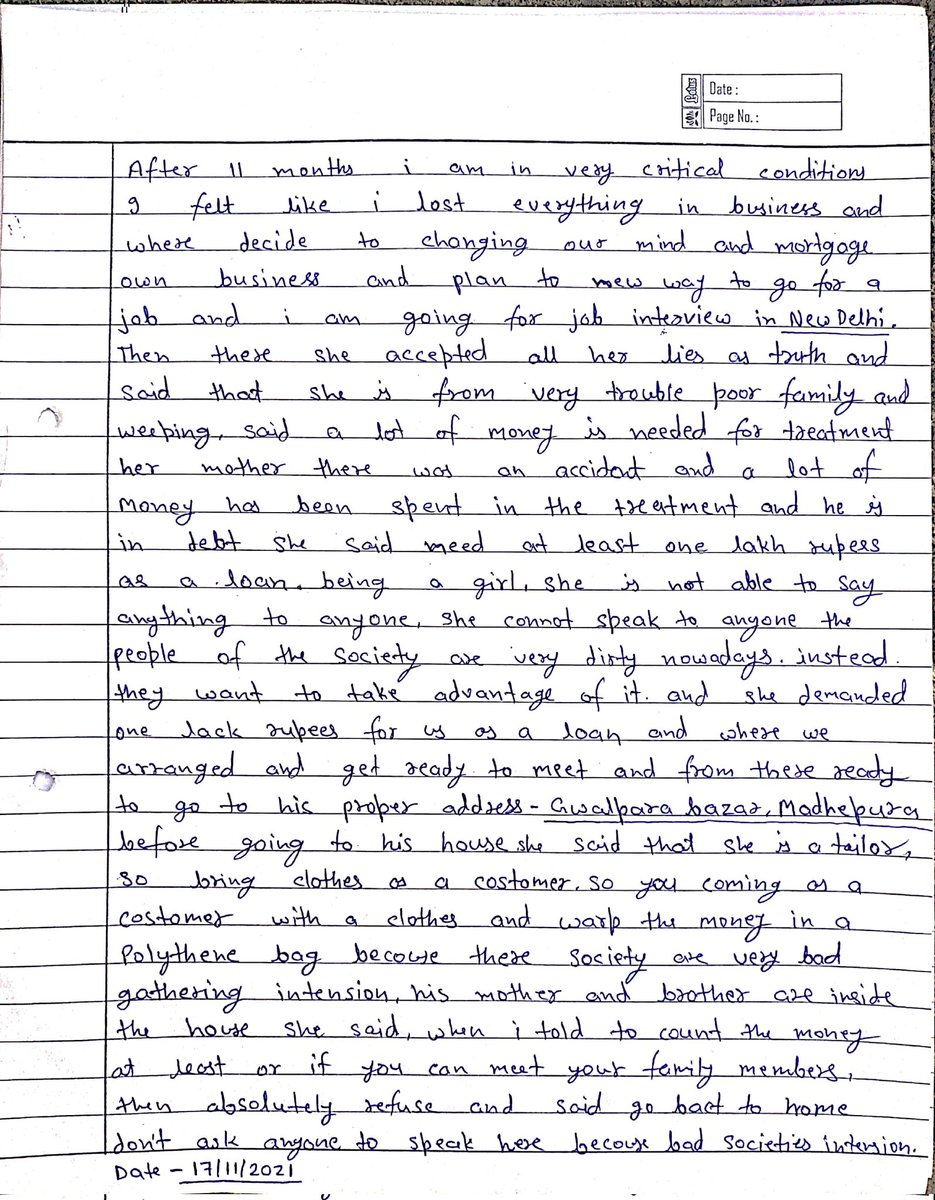 Lotus
Date :
Page No. :
After 11 months i am in very critical conditions
I felt like i lost everything in business and
where decide to changing our mind and mortgage
own business and plan to new way to go for a
job and i am going for job interview in New Delhi.
Then there she accepted all her lies as truth and
said that she is from very trouble poor family and
weeping, said a lot of money is needed for treatment
her mother there was an accident and a lot of
money has been spent in the treatment and he is
in debt she said need at least one lakh rupees
as a loan. being a girl, she is not able to say
anything to anyone, she connot speak to anyone the
people of the society are very dirty nowadays. instead.
they want to take advantage of it. and she demanded
one lack rupees for us as a loan and where we
arranged and get ready to meet and from there ready
to go to his proper address - Gwalpara bazar, Madhepura
before going to his house she said that she is a tailor,
so bring clothes as a costomer. so you coming as a
costomer with a clothes and warp the money in a
Polythene bag becouse there society are very bad
gathering intension, his mother and brother are inside
the house she said, when i told to count the money
at least or if you can meet your family members,
then absolutely refuse and said go bact to home
don't ask anyone to speak here becouse bad societies intension.
Date - 17/11/2021